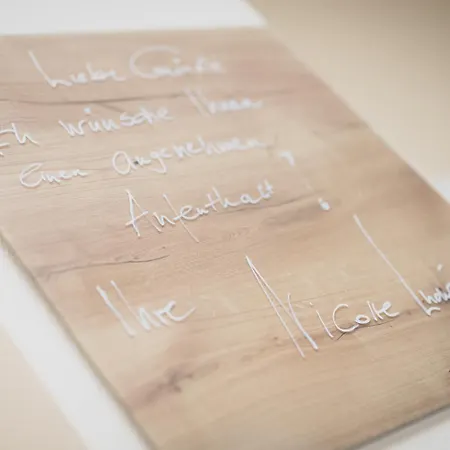 Liebe Gäste
Ich wünsche Ihnen
einen angenehmen
Aufenthalt!
Ihre Nicolle